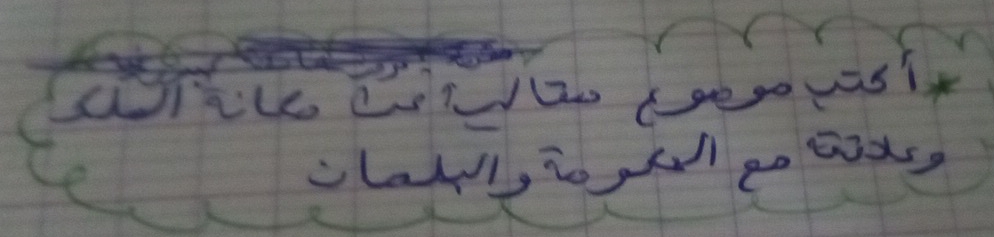 * أكتب موضوع مقالي عن مكانة الملك
وعلاقته مع الحكومة والبرلمان